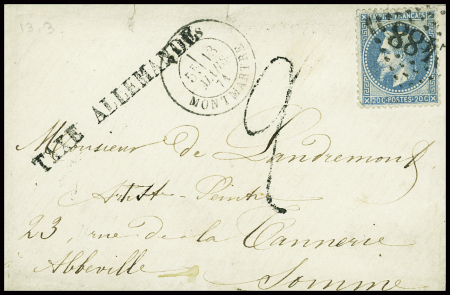 13.3
TAXE ALLEMANDEs
13
MARS
71
MONTMARTRE
2
EMPIRE FRANÇAIS
20 C POSTES 20 C
Monsieur de Landremont
Artiste Peintre
23, rue de la Tannerie
Abbeville Somme